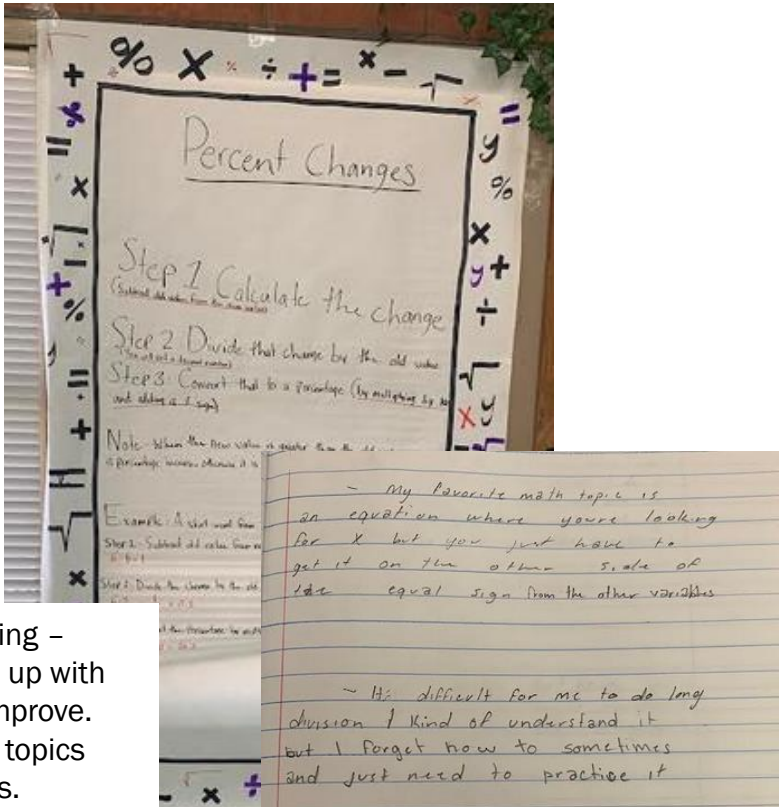 Percent Changes
Step 1 Calculate the change
(Subtract old value from the new value)
Step 2 Divide that change by the old value
Step 3: Convert that to a percentage (by multiplying by
and adding a % sign)
Note: When the new value is greater than the old
is percentage increase otherwise it is
Example: A shirt went from
Step 1: Subtract old value from
Step 2: Divide the change by the old
the percentage by
- My favorite math topic is
an equation where youre looking
for x but you just have to
get it on the other side of
the equal sign from the other variables
- It's difficult for me to do long
division I kind of understand it
but I forget how to sometimes
and just need to practice it
ing –
up with
mprove.
topics
s.